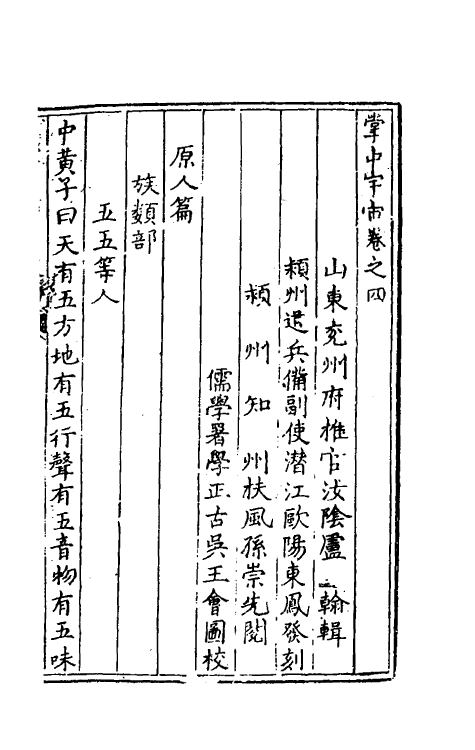 掌中宇宙卷之四
山東兗州府推官汝陰盧翰輯
頴州道兵備副使潛江歐陽東鳳發刻
頴州知州扶風孫崇先閱
儒學署學正古吳王會圖校
原人篇
族類部
五五等人
中黄子曰天有五方地有五行聲有五音物有五味